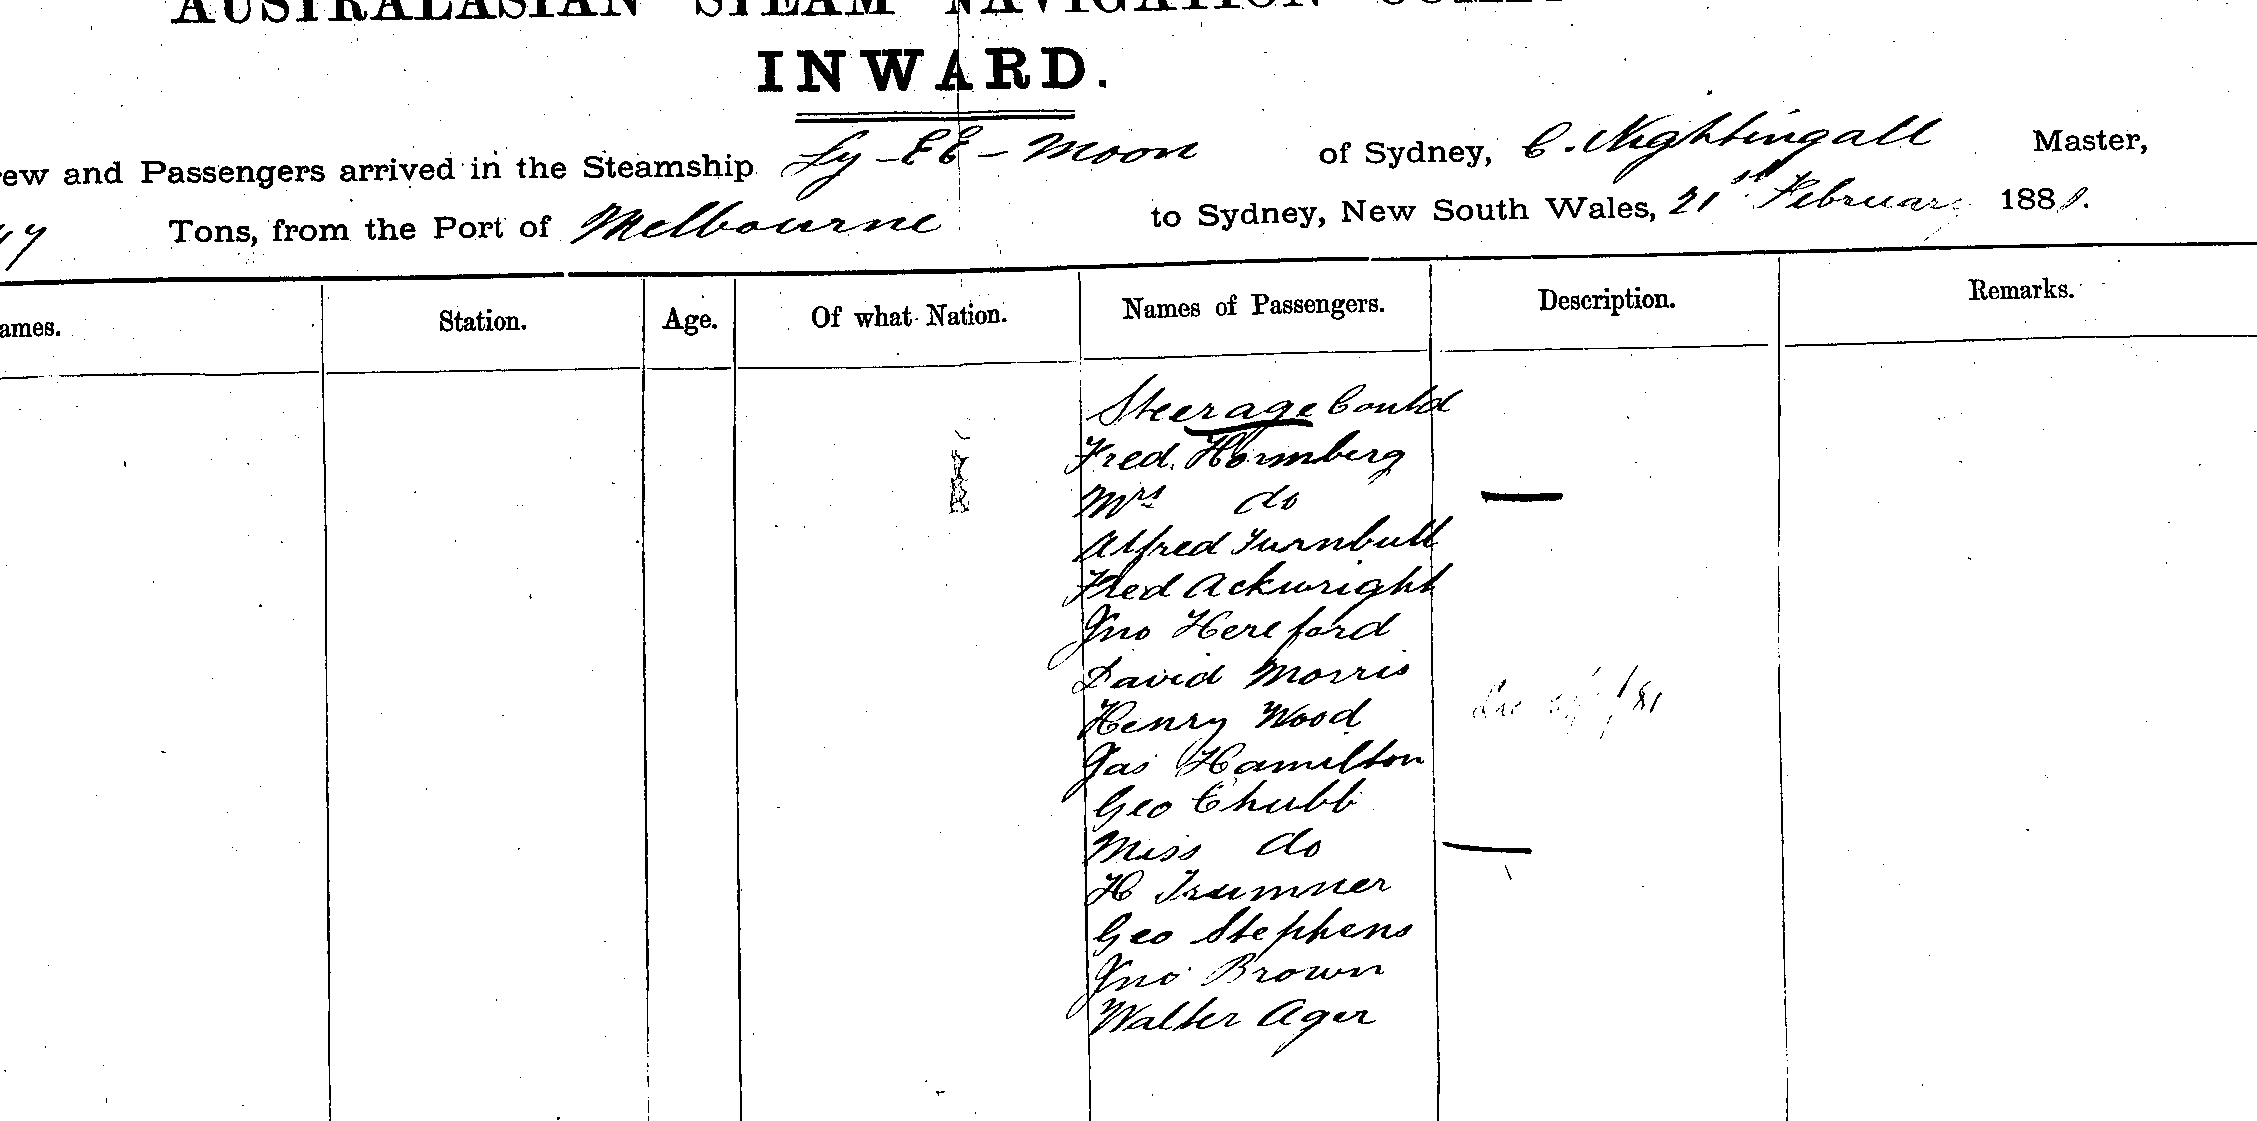 AUSTRALASIAN STEAM NAVIGATION
INWARD.
ew and Passengers arrived in the Steamship Ly-EE-Moon of Sydney, C. Nightingall Master,
Tons, from the Port of Melbourne to Sydney, New South Wales, 21st Februar 188
ames. Station. Age. Of what Nation. Names of Passengers. Description. Remarks.
Steerage Contd
Fred. Hormberg
Mrs do
Alfred Turnbull
Fred Ackwright
Jno Hereford
David Morris
Henry Wood
Jas Hamilton
Geo Chubb
Miss do
H Trumner
Geo Stephens
Jno Brown
Walter Ager